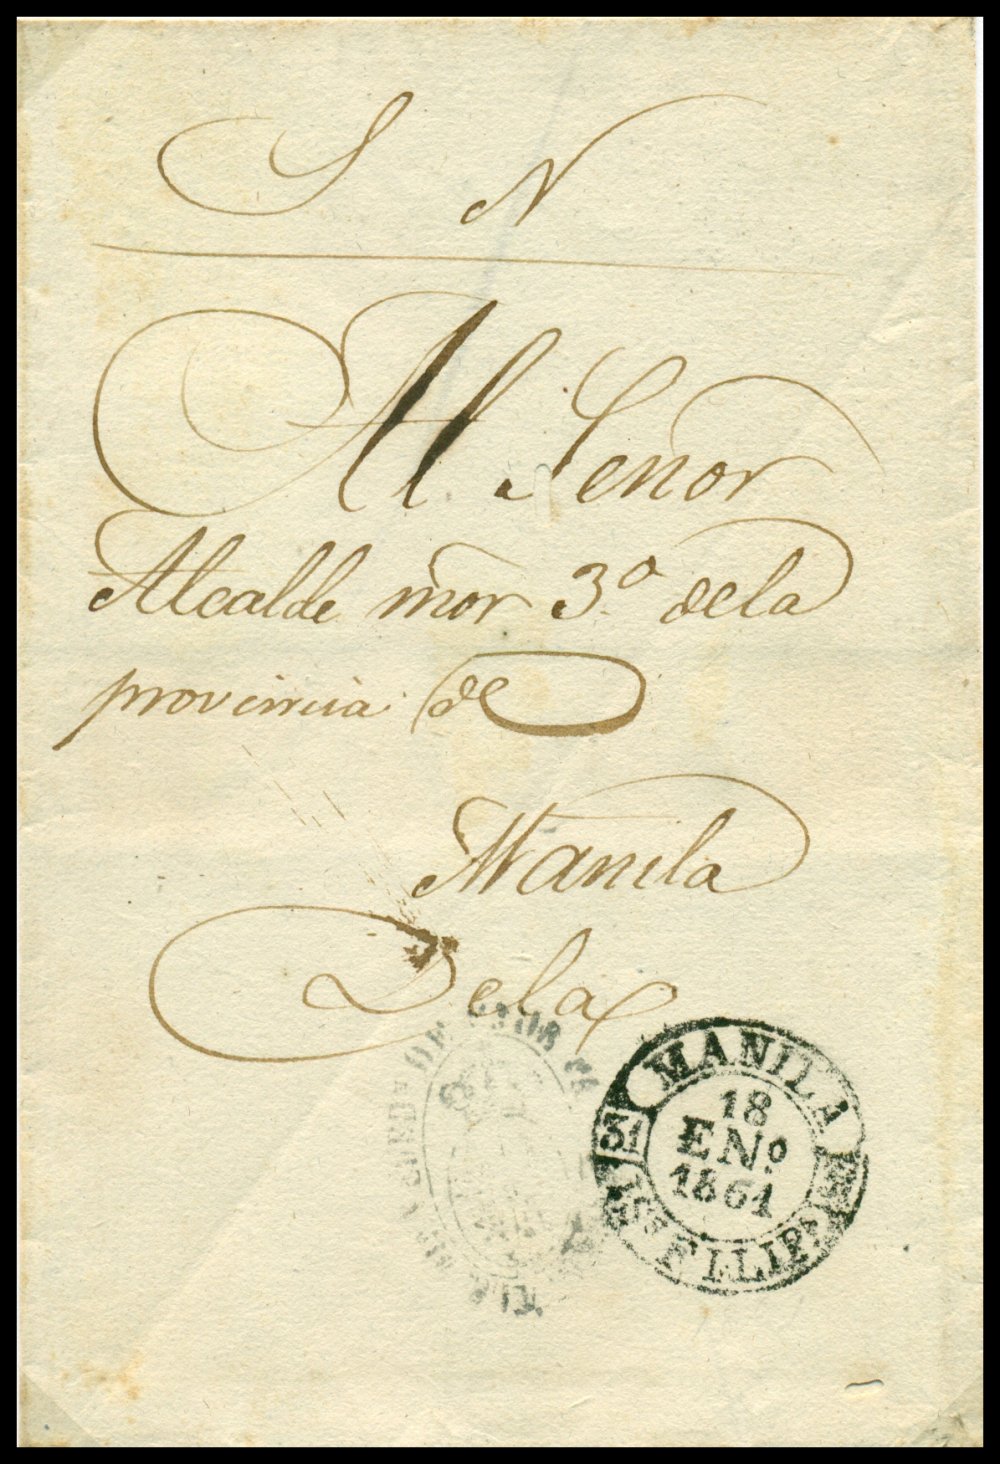 S N
Al Señor
Alcalde mor 3º de la
provincia de
Manila
De la
MANILA
18
ENº
1861
31
ISS FILIPS